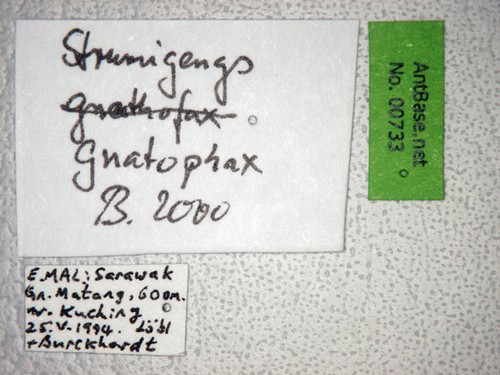 Strumigenys
gnathofax
Gnatophax
B. 2000
AntBase.net
No. 00733
E.MAL; Sarawak
Gn. Matang, 600m.
nr. Kuching
25.V.1994. Löbl
+ Burckhardt